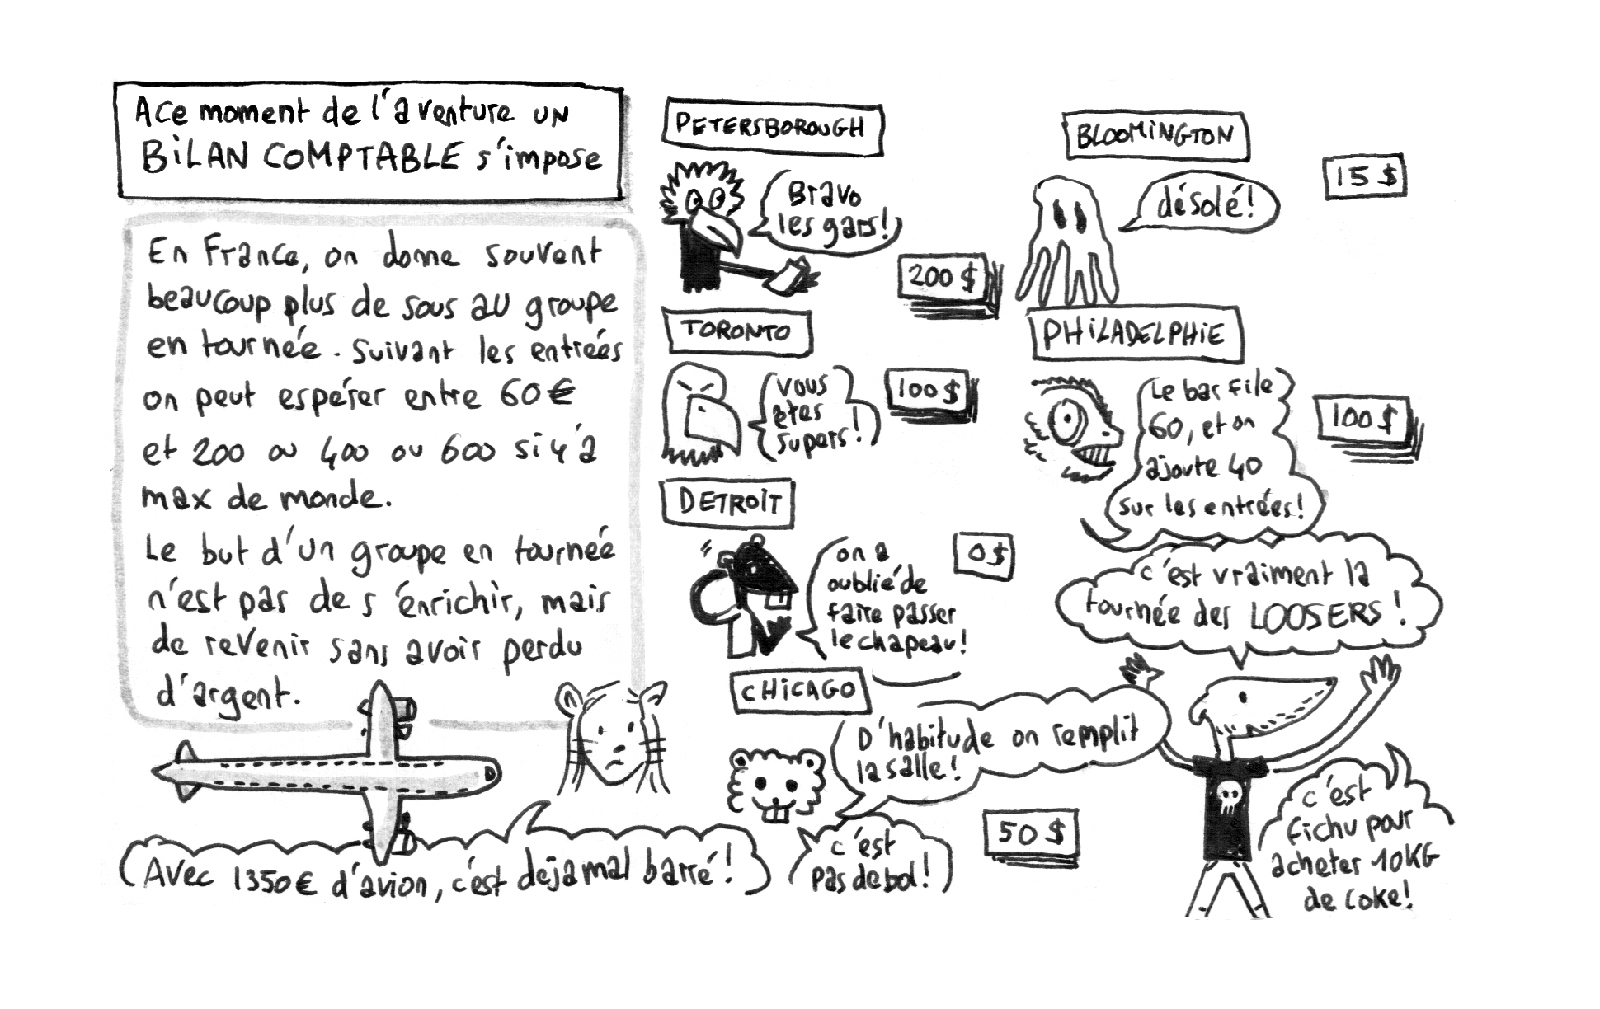 A ce moment de l'aventure un
BiLAN COMPTABLE s'impose
En France, on donne souvent
beaucoup plus de sous au groupe
en tournée. Suivant les entrées
on peut espérer entre 60€
et 200 ou 400 ou 600 si y'a
max de monde.
Le but d'un groupe en tournée
n'est pas de s'énrichir, mais
de revenir sans avoir perdu
d'argent.
Avec 1350€ d'avion, c'est deja mal barré!
PETERSBOROUGH
Bravo
les gars!
200 $
TORONTO
vous
êtes
supers!
100 $
DETROIT
on a
oublié de
faire passer
le chapeau!
0 $
CHICAGO
D'habitude on remplit
la salle!
c'est
pas de bol!
50 $
BLOOMINGTON
désolé!
15 $
PHILADELPHIE
Le bar file
60, et on
ajoute 40
sur les entrées!
100 $
c'est vraiment la
tournée des LOOSERS!
c'est
fichu pour
acheter 10KG
de coke!